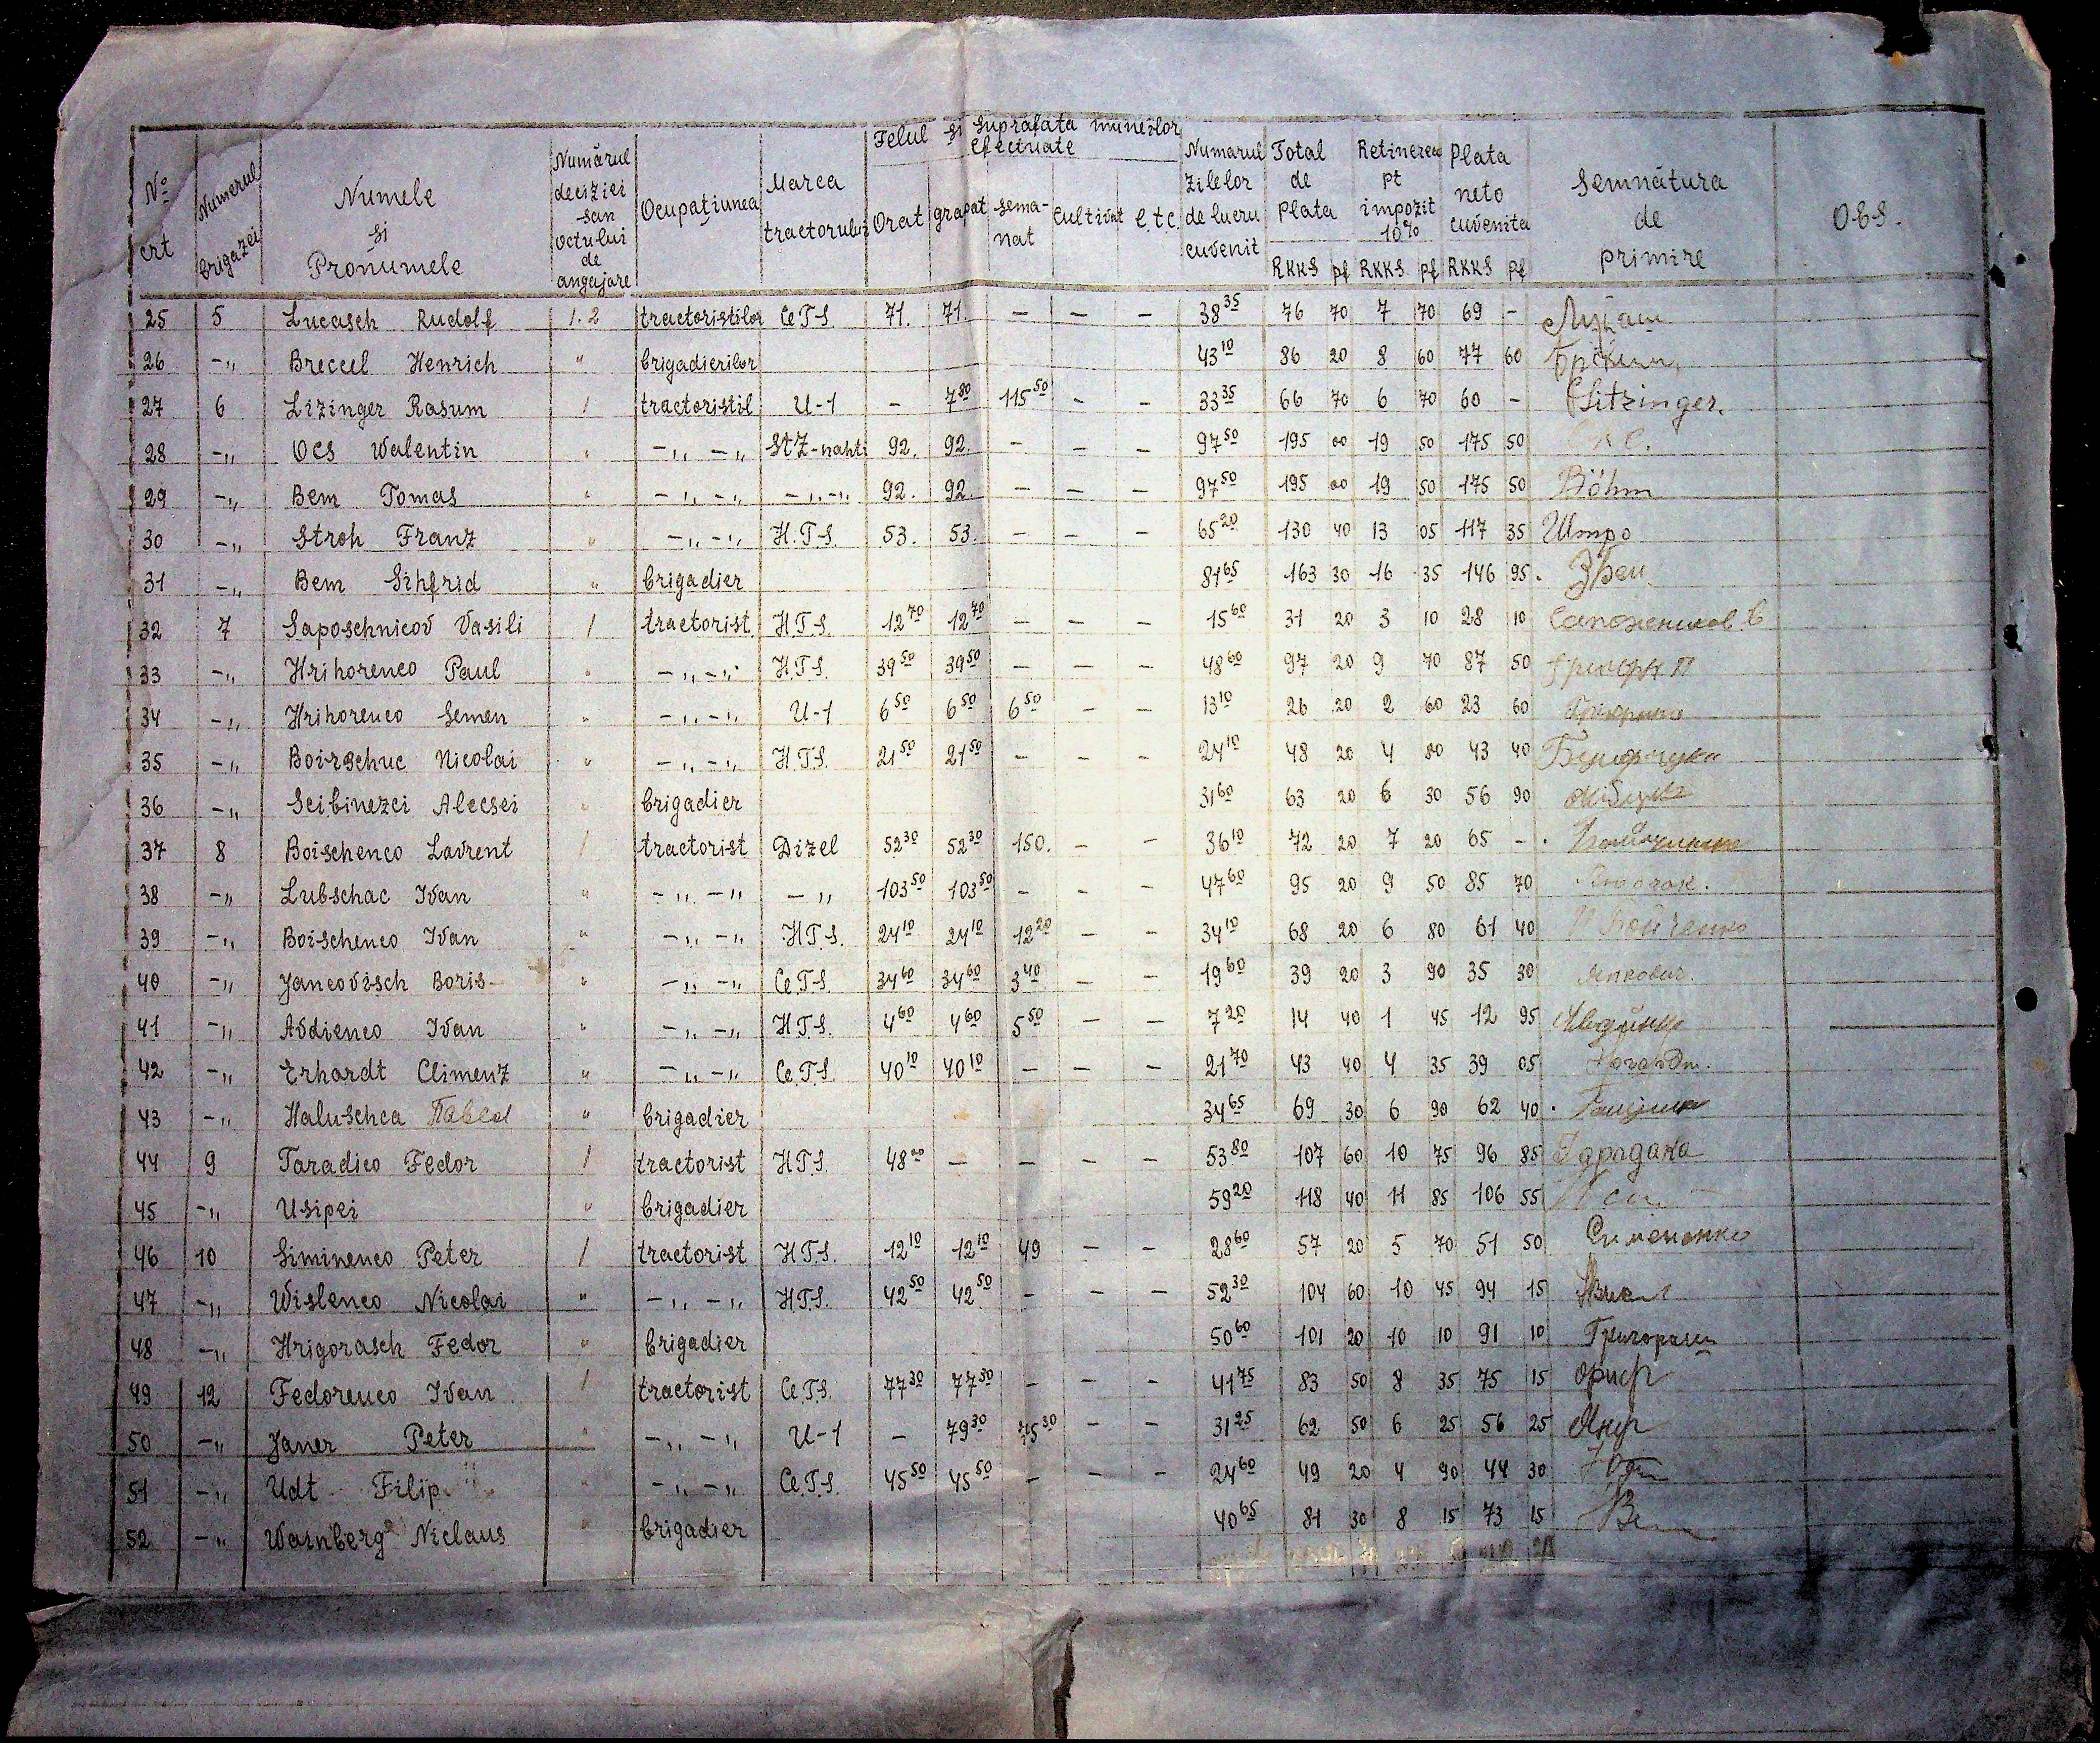 Felul și suprafata muncilor efectuate
Nº crt | Numerul brigazei | Numele și Pronumele | Numărul deciziei sau actului de angajare | Ocupațiunea | Marca tractorului | Orat | grapat | semanat | Cultivat | e.t.c. | Numarul zilelor de lucru cuvenit | Total de Plata RKKS pf | Retinerea pt impozit 10% RKKS pf | Plata neto cuvenita RKKS pf | Semnătura de primire | OBS.
25 5 Lucasch Rudolf 1.2 tractoristilor CeTS. 71. 71. - - - 38 35 76 70 7 70 69 - Лукаш
26 -„ Breccel Henrich " brigadierilor 43 10 86 20 8 60 77 60
27 6 Lizinger Rasum 1 tractoristil U-1 - 7 80 115 50 - - 33 35 66 70 6 70 60 - Litzinger.
28 -„ Ocs Walentin " -„ -„ StZ-nahti 92. 92. - - - 97 50 195 00 19 50 175 50
29 -„ Bem Tomas " -„ -„ -„-„ 92. 92. - - - 97 50 195 00 19 50 175 50 Böhm
30 -„ Stroh Franz " -„ -„ H.T.S. 53. 53. - - - 65 20 130 40 13 05 117 35 Штро
31 -„ Bem Sihfrid " brigadier 81 65 163 30 16 35 146 95.
32 7 Saposchnicov Vasili 1 tractorist H.T.S. 12 70 12 70 - - - 15 60 31 20 3 10 28 10 Сапожников В
33 -„ Hrihorenco Paul " -„ -„ H.T.S. 39 50 39 50 - - - 48 60 97 20 9 70 87 50
34 -„ Hrihorenco Semen " -„ -„ U-1 6 50 6 50 6 50 - - 13 10 26 20 2 60 23 60
35 -„ Boirschuc Nicolai " -„ -„ H.T.S. 21 50 21 50 - - - 24 10 48 20 4 80 43 40
36 -„ Scibinezci Alecsei " brigadier 31 60 63 20 6 30 56 90
37 8 Boischenco Lavrent 1 tractorist Dizel 52 30 52 30 150. - - 36 10 72 20 7 20 65 -.
38 -„ Lubschac Ivan " -„ -„ -„ 103 50 103 50 - - - 47 60 95 20 9 50 85 70
39 -„ Boischenco Ivan " -„ -„ H.T.S. 24 10 24 10 12 20 - - 34 10 68 20 6 80 61 40 И Бойченко
40 -„ Jancovisch Boris " -„ -„ Ce.T.S. 34 60 34 60 3 40 - 19 60 39 20 3 90 35 30 Янкович.
41 -„ Avdienco Ivan " -„ -„ H.T.S. 4 60 4 60 5 50 - - 7 20 14 40 1 45 12 95
42 -„ Erhardt Climenz " -„ -„ Ce.T.S. 40 10 40 10 - - - 21 70 43 40 4 35 39 05
43 -„ Haluschca Павел " brigadier 34 65 69 30 6 90 62 40.
44 9 Taradico Fedor 1 tractorist H.T.S. 48 00 - - - - 53 80 107 60 10 75 96 85
45 -„ Usipei " brigadier 59 20 118 40 11 85 106 55
46 10 Siminenco Peter 1 tractorist H.T.S. 12 10 12 10 49 - - 28 60 57 20 5 70 51 50 Симоненко
47 -„ Wislenco Nicolai " -„ -„ H.T.S. 42 50 42 50 - - - 52 30 104 60 10 45 94 15
48 -„ Hrigorasch Fedor " brigadier 50 60 101 20 10 10 91 10 Григораш
49 12 Fedorenco Ivan 1 tractorist Ce.T.S. 77 30 77 30 - - - 41 75 83 50 8 35 75 15
50 -„ Janer Peter " -„ -„ U-1 - 79 30 75 30 - - 31 25 62 50 6 25 56 25
51 -„ Udt Filip " -„ -„ Ce.T.S. 45 50 45 50 - - - 24 60 49 20 4 90 44 30
52 -„ Wainberg Niclaus " brigadier 40 65 81 30 8 15 73 15